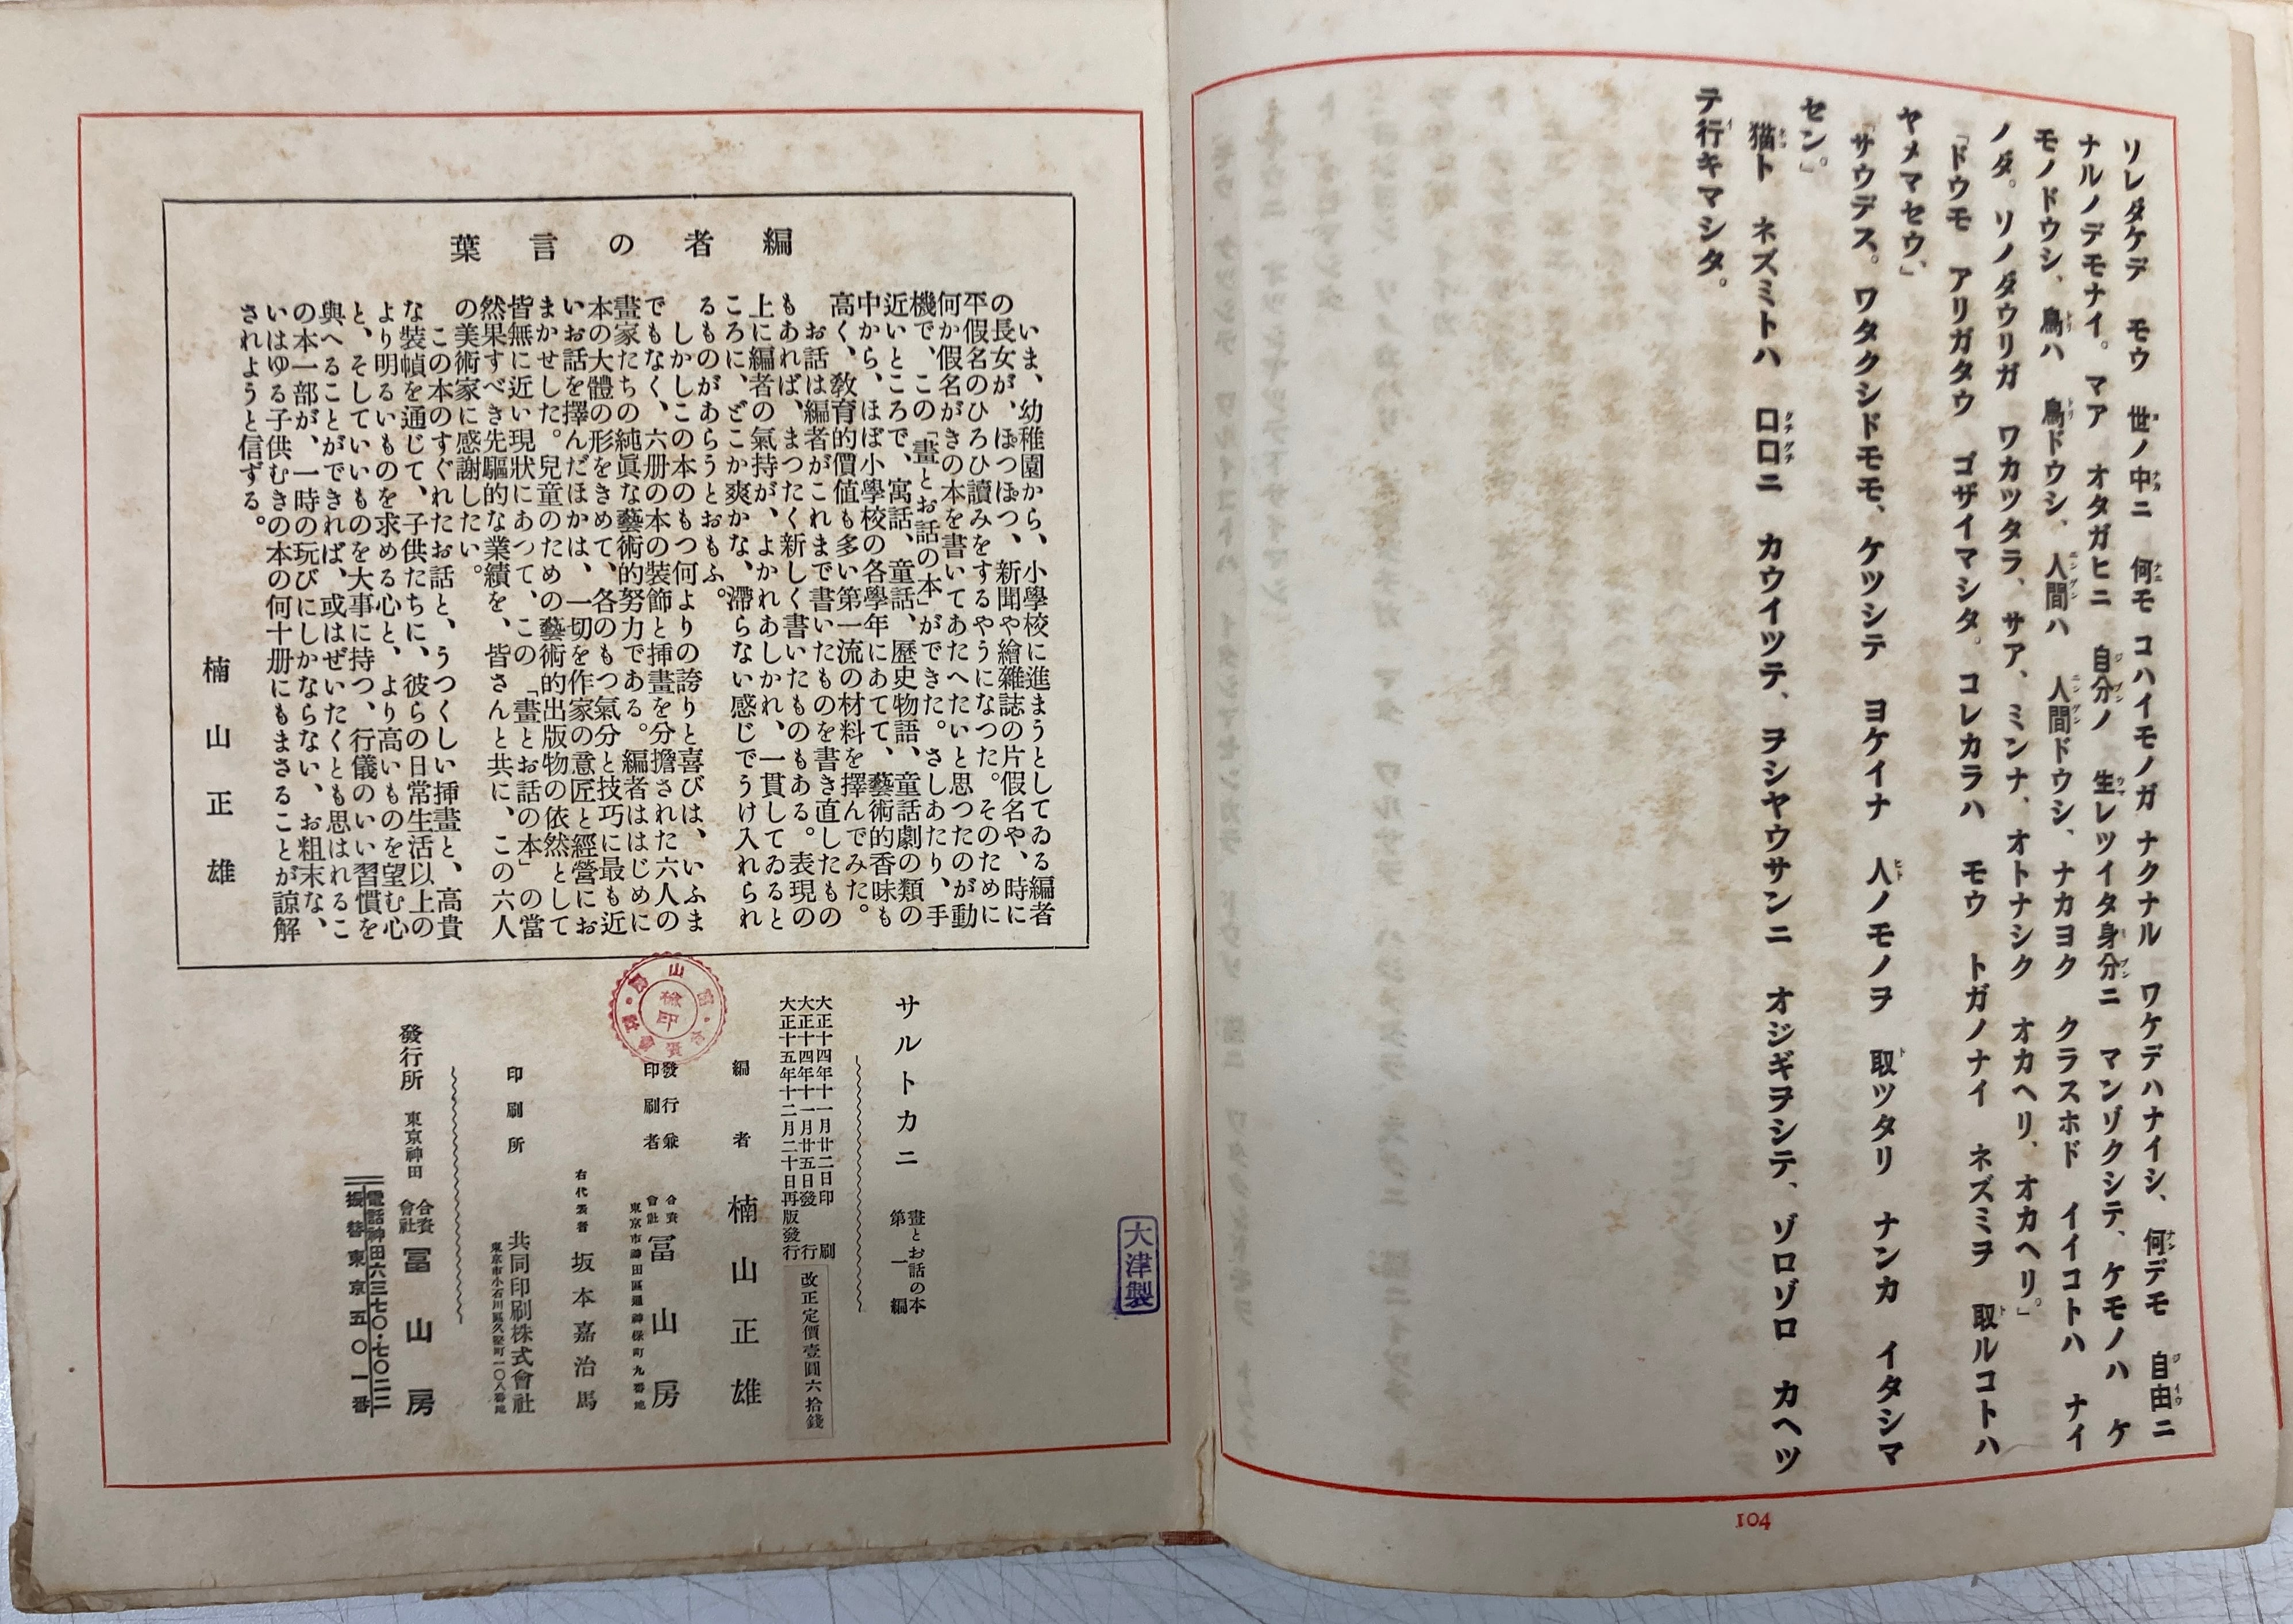 リレダケデ モウ 世ノ中ニ 何モ コハイモノガ ナクナル ワケデハナイシ、何デモ 自由ニ
ナルノデモナイ。マア オタガヒニ 自分ノ 生レツイタ身分ニ マンゾクシテ、ケモノハ ケ
モノドウシ、鳥ハ 鳥ドウシ、人間ハ 人間ドウシ、ナカヨク クラスホド イイコトハ ナイ
ノダ。ソノダウリガ ワカツタラ、サア、ミンナ、オトナシク オカヘリ、オカヘリ。」
「ドウモ アリガタウ ゴザイマシタ。コレカラハ モウ トガノナイ ネズミヲ 取ルコトハ
ヤメマセウ、」
「サウデス。ワタクシドモモ、ケツシテ ヨケイナ 人ノモノヲ 取ツタリ ナンカ イタシマ
セン。」
猫ト ネズミトハ 口口ニ カウイツテ、ヲシヤウサンニ オジギヲシテ、ゾロゾロ カヘツ
テ行キマシタ。
104
編者の言葉
いま、幼稚園から、小學校に進まうとしてゐる編者
の長女が、ぽつぽつ、新聞や繪雜誌の片假名や、時に
平假名のひろひ讀みをするやうになつた。そのために
何か假名がきの本を書いてあたへたいと思つたのが動
機で、この「畫とお話の本」ができた。さしあたり、手
近いところで、寓話、童話、歷史物語、童話劇の類の
中から、ほぼ小學校の各學年にあてて、藝術的香味も
高く、敎育的價値も多い第一流の材料を擇んでみた。
お話は編者がこれまで書いたものを書き直したもの
もあれば、まつたく新しく書いたものもある。表現の
上に編者の氣持が、よかれあしかれ、一貫してゐると
ころに、どこか爽かな、滯らない感じでうけ入れられ
るものがあらうとおもふ。
しかしこの本のもつ何よりの誇りと喜びは、いふま
でもなく、六册の本の裝飾と挿畫を分擔された六人の
畫家たちの純眞な藝術的努力である。編者ははじめに
本の大體の形をきめて、各のもつ氣分と技巧に最も近
いお話を擇んだほかは、一切を作家の意匠と經營にお
まかせした。兒童のための藝術的出版物の依然として
皆無に近い現狀にあつて、この「畫とお話の本」の當
然果すべき先驅的な業績を、皆さんと共に、この六人
の美術家に感謝したい。
この本のすぐれたお話と、うつくしい挿畫と、高貴
な裝幀を通じて、子供たちに、彼らの日常生活以上の
より明るいものを求める心と、より高いものを望む心
と、そしていいものを大事に持つ、行儀のいい習慣を
與へることができれば、或はぜいたくとも思はれるこ
の本一部が、一時の玩びにしかならない、お粗末な、
いはゆる子供むきの本の何十册にもまさることが諒解
されようと信ずる。
楠山正雄
サルトカニ
畫とお話の本
第一編
大正十四年十一月廿二日印刷
大正十四年十一月廿五日發行
大正十五年十二月二十日再版發行
改正定價壹圓六拾錢
編者 楠山正雄
發行兼
印刷者
合資
會社 冨山房
東京市神田區通神保町九番地
右代表者 坂本嘉治馬
印刷所 共同印刷株式會社
東京市小石川區久堅町一〇八番地
發行所 東京神田 合資
會社 冨山房
電話神田六三七〇・七〇二二
振替東京五〇一番
檢印
大津製